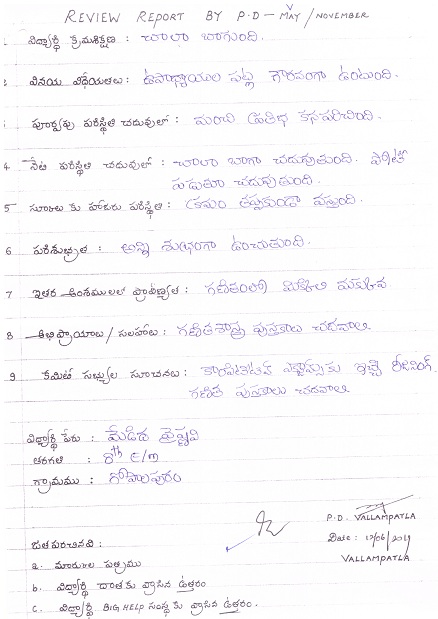 REVIEW REPORT BY P.D - MAY / NOVEMBER
1 విద్యార్థి క్రమశిక్షణ : చాలా బాగుంది.
2 వినయ విధేయతలు : ఉపాధ్యాయుల పట్ల గౌరవంగా ఉంటుంది.
3 పూర్వపు పరిస్థితి చదువులో : మంచి ప్రతిభ కనపరిచింది.
4 నేటి పరిస్థితి చదువులో : చాలా బాగా చదువుతుంది.
చదువుతుంది.
5 స్కూలు కు హాజరు పరిస్థితి : క్రమం తప్పకుండా వస్తుంది.
6 పరిశుభ్రత : అన్ని శుభ్రంగా ఉంచుతుంది.
7 ఇతర అంశములలో ప్రావీణ్యత : గణితంలో మిక్కిలి మక్కువ
8 అభిప్రాయాలు / సలహాలు : గణితశాస్త్ర పుస్తకాలు చదవాలి
9 కమిటీ సభ్యుల సూచనలు : కాంపిటేటివ్ ఎగ్జామ్స్ కు ఇచ్చే రీజనింగ్
గణిత పుస్తకాలు చదవాలి
విద్యార్థి పేరు : మేడిద వైష్ణవి
తరగతి : 8th E/M
గ్రామము : గోపాలపురం
P.D. VALLAMPATLA
Date : 12/06/2019
VALLAMPATLA
జతపరచినవి :
a. మార్కుల పత్రము
b. విద్యార్థి దాతకు వ్రాసిన ఉత్తరం
c. విద్యార్థి BIG HELP సంస్థ కు వ్రాసిన ఉత్తరం.